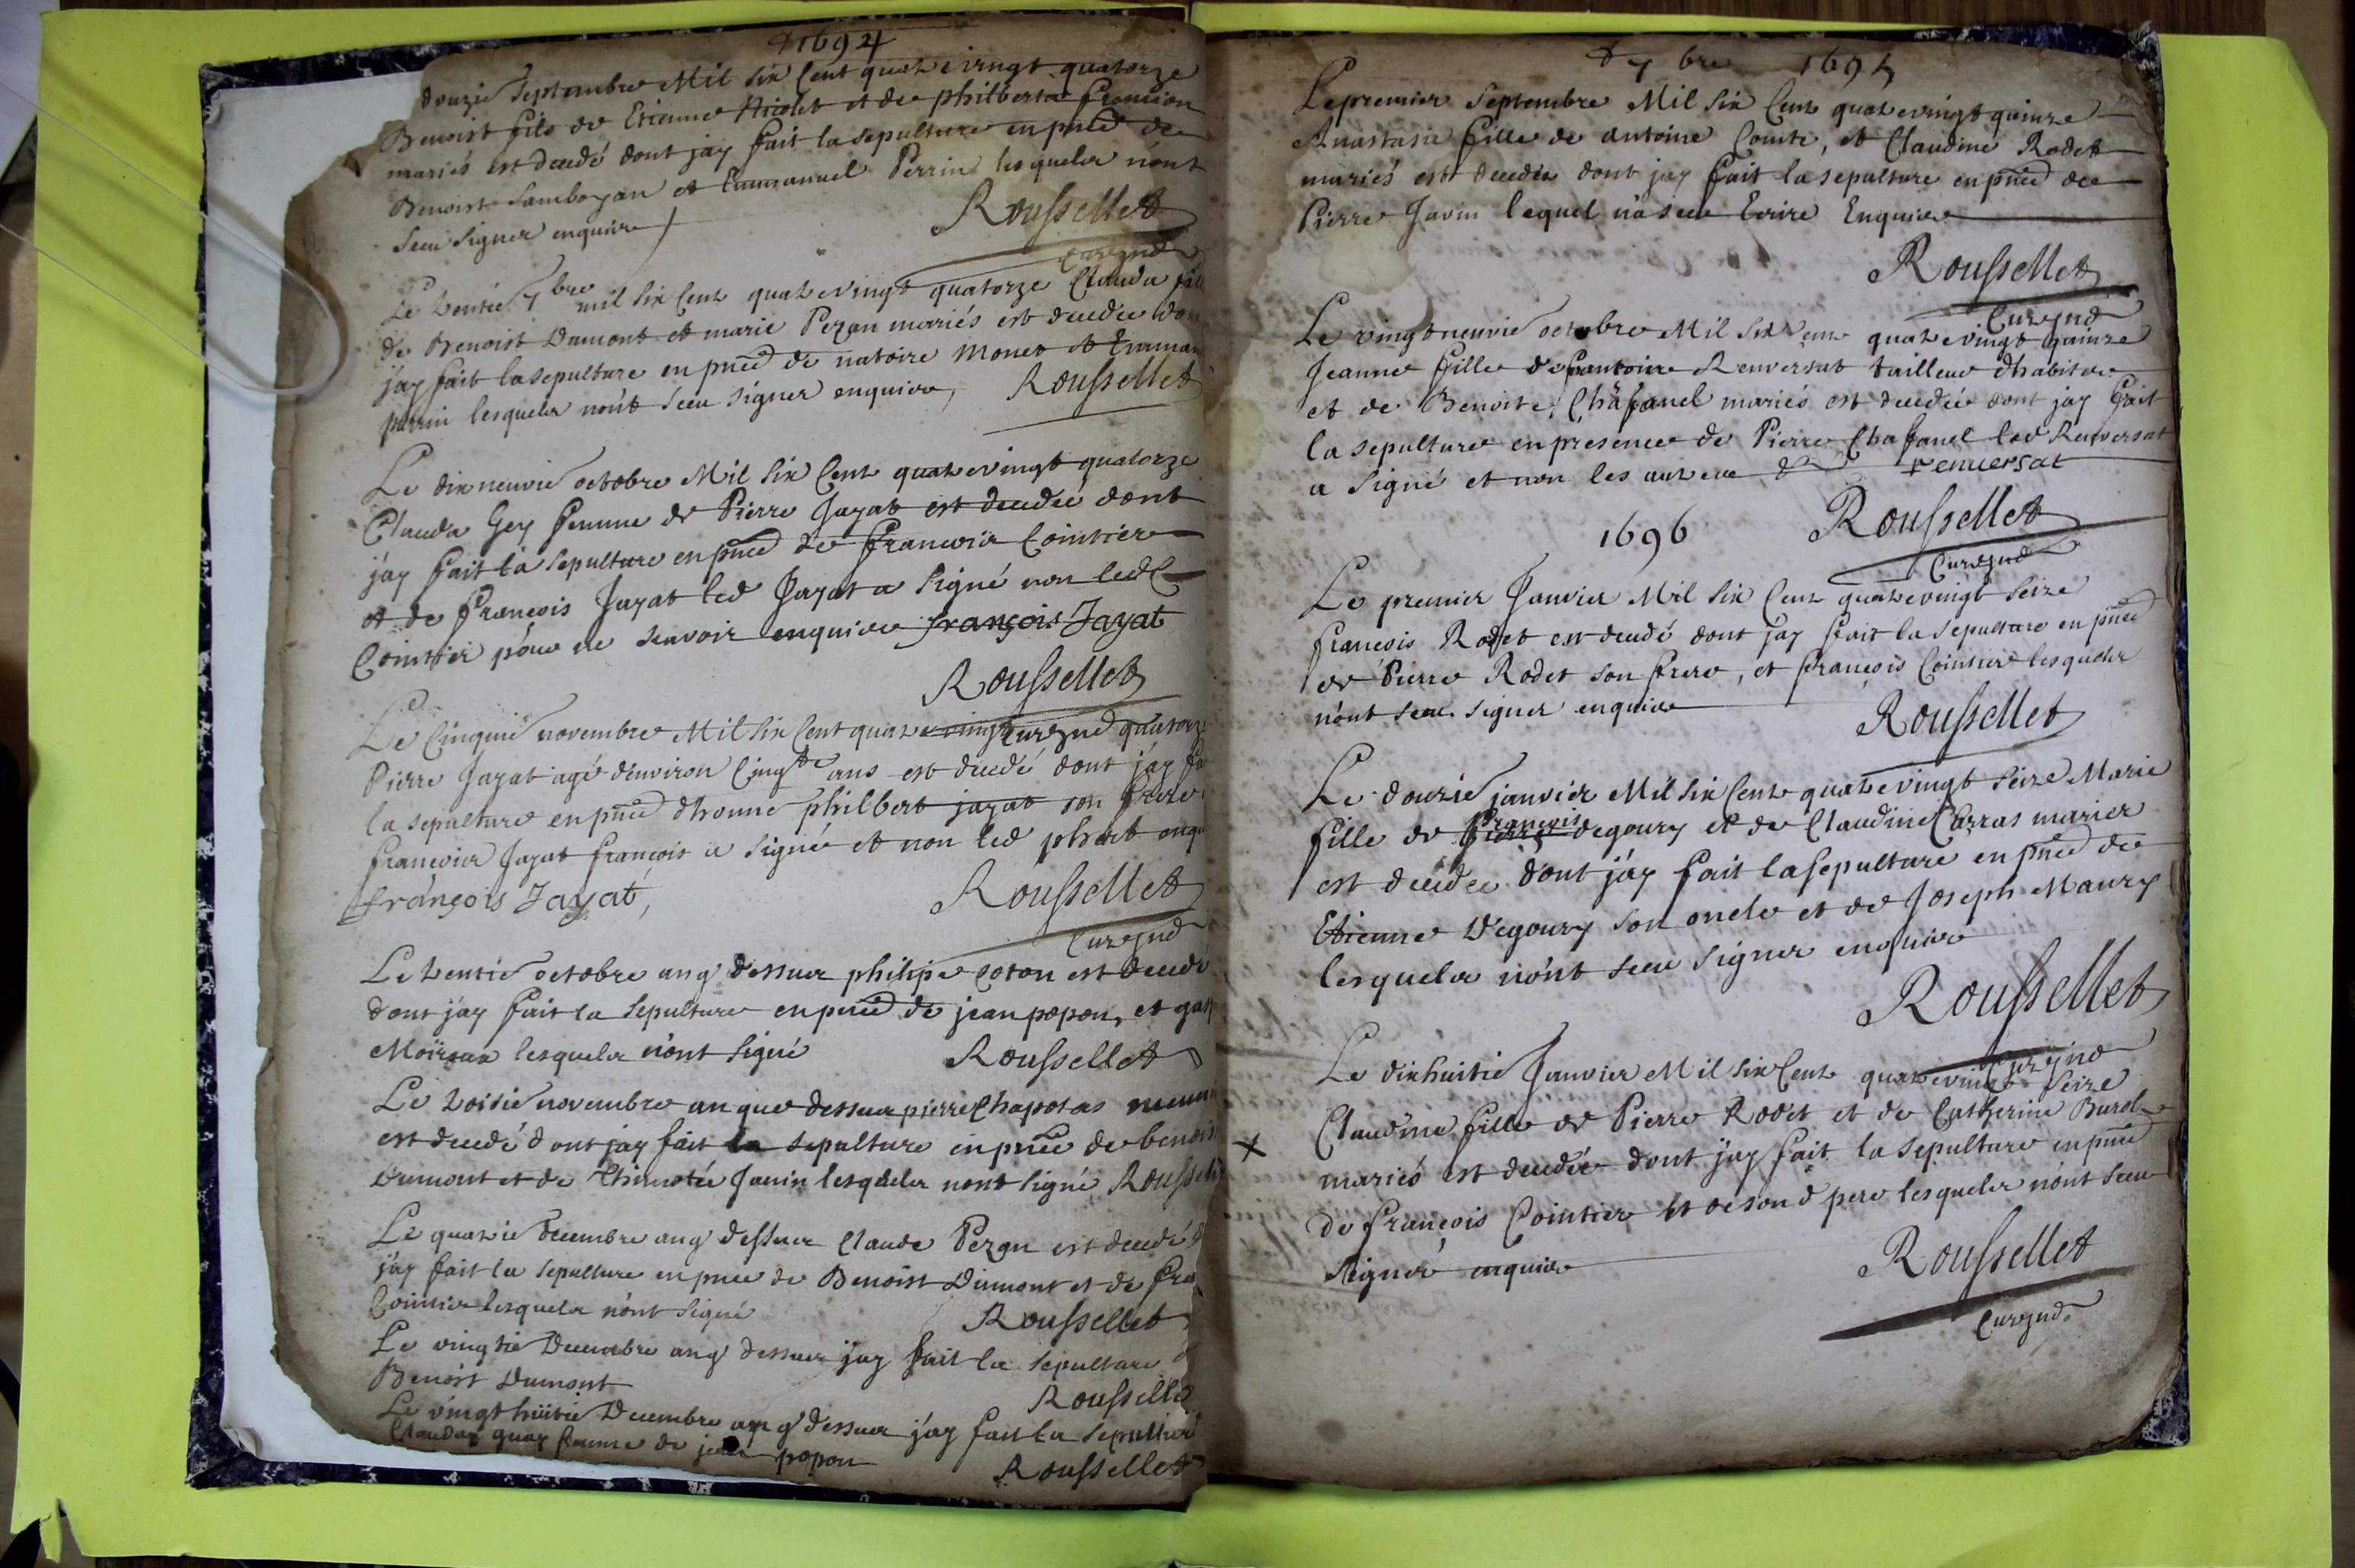 1694
douzie Septembre Mil Six Cent quatrevingt quatorze
Benoist fils de Etienne Nicolet et de philberte
mariés est decedé dont jay fait la sepulture en pnce de
Benoist Lamboyan et Emmanuel Perrin lesquels nont
sceu signer enquire
Rousselled
Cure
Le trentie 7bre mil six Cent quatrevingt quatorze Clauda
de Benoist Dumont et marie Pezan mariés est decedee
jay fait la sepulture en pnce de natoire Monet et
perrin lesquels nont sceu signer enquire, Roussellet
Le dix neuvie octobre Mil Six Cent quatrevingt quatorze
Clauda Gey femme de Pierre Jayat est decedée dont
jay fait la sepulture en pnce de francois Cointier
et de François Jayat led Jayat a signé non led
Cointier pour ne scavoir enquire françois Jayat
Roussellet
Le Cinquie novembre Mil Six Cent quatrevingt quatorze
Cure
Pierre Jayat agé denviron Cinqte ans est decedé dont jay
la sepulture en pnce dhonne philbert jayat son frere
francois Jayat francois a signé et non led phbert
françois Jayat, Roussellet
Cure
Le trentie octobre an q dessus philipe coton est decedé
dont jay fait la sepulture en pnce de jean popon, et
lesquels nont signé Roussellet
Le troisie novembre an que dessus pierre Chaposas
est decedé dont jay fait la sepulture en pnce de
Dumont et de Thimotée Janin lesquels nont signé
Le quatrie decembre an q dessus Claude Pezan est decedé
jay fait la sepulture en pnce de Benoist Dumont et de
Cointier lesquels nont signé Roussellet
Le vingtie Decembre an q dessus jay fait la sepulture
Benoist Dumont
Le vingt huitie Decembre an q dessus jay fait la sepulture
Clauda femme de jean popon
Roussellet
7 bre 1695
Le premier Septembre Mil Six Cent quatrevingt quinze
Anastasie fille de antoine Comte, et Claudine Rodet
mariés est decedée dont jay fait la sepulture en pnce de
Pierre Javin lequel na sceu Ecrire Enquire
Roussellet
Cure
Le vingt neuvie octobre Mil Six Cent quatrevingt quinze
Jeanne fille de antoine Renversat tailleur dhabits
et de Benoite Chafanel mariés est decedée dont jay fait
la sepulture en presence de Pierre Chafanel led Renversat
a signé et non les autres renversat
1696 Roussellet
Cure
Le premier Janvier Mil Six Cent quatrevingt seize
francois Rodet est decedé dont jay fait la sepulture en pnce
de Pierre Rodet son frere, et françois Cointier lesquels
nont sceu signer enquire
Roussellet
Le douzie janvier Mil Six Cent quatrevingt seize Marie
françois
fille de degoury et de Claudine Carras mariez
est decedee dont jay fait la sepulture en pnce de
Etienne Degoury son oncle et de Joseph Maury
lesquels nont sceu signer enquire
Roussellet
Cure
Le dixhuitie Janvier Mil Six Cent quatrevingt seize
Claudine fille de Pierre Rodet et de Catherine
mariés est decedée dont jay fait la sepulture en pnce
de françois Cointier et de sond pere lesquels nont sceu
signer enquire
Roussellet
Cure